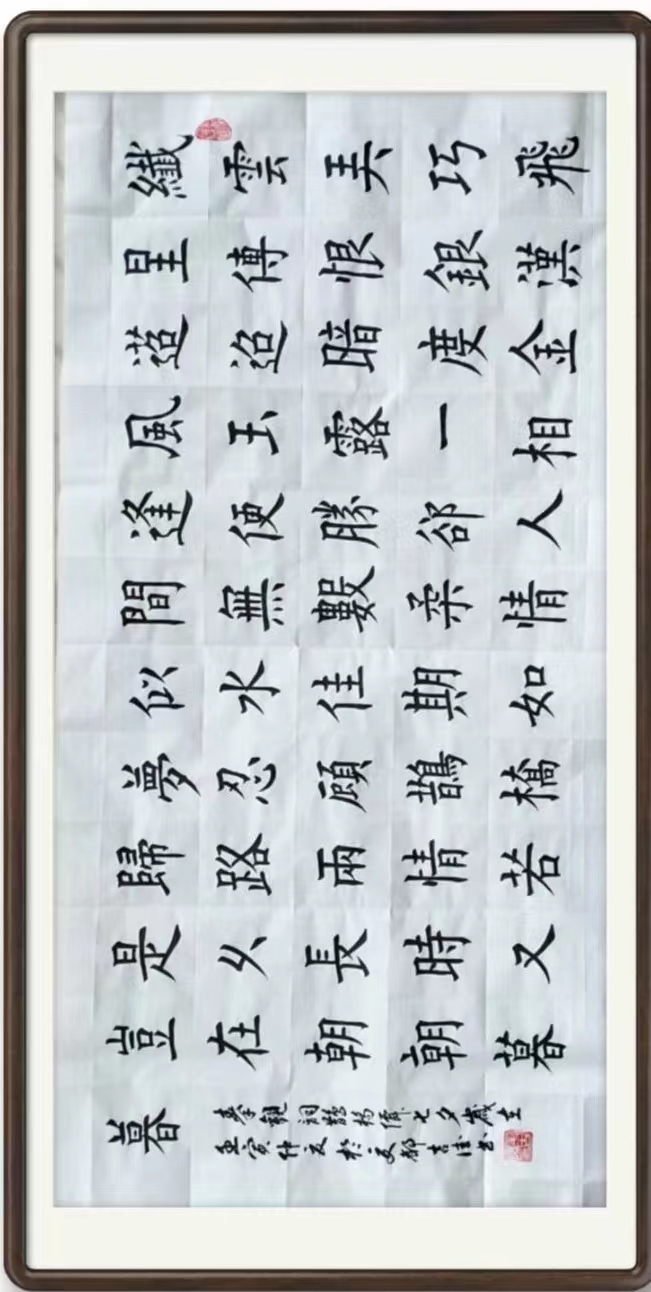 纖雲弄巧飛
星傳恨銀漢
迢迢暗度金
風玉露一相
逢便勝卻人
間無數柔情
似水佳期如
夢忍顧鵲橋
歸路兩情若
是久長時又
豈在朝朝暮
暮
秦觀詞鵲橋僊七夕歲在
壬寅仲夏於